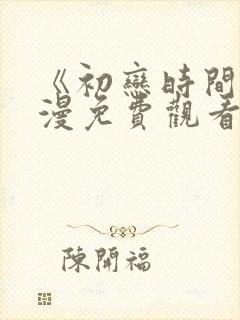 《初戀時間
漫免費觀看
陳開福